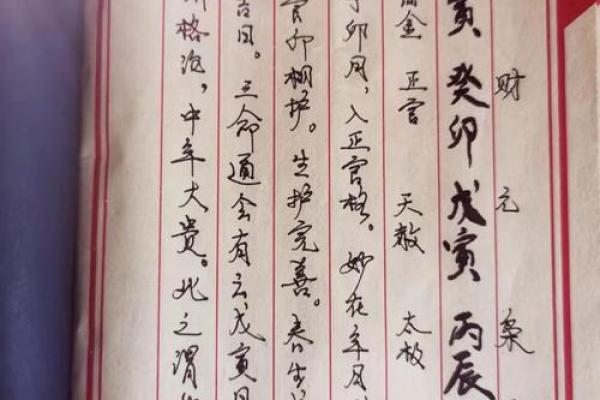 财 元 枭
寅 癸卯 戊寅 丙辰
金 正官 天赦 太极
卯月，入正官格。妙在年月
官卯相护。生护完善。春生
吉日。三命通会有云，戊寅日
格，中年大贵。此之谓